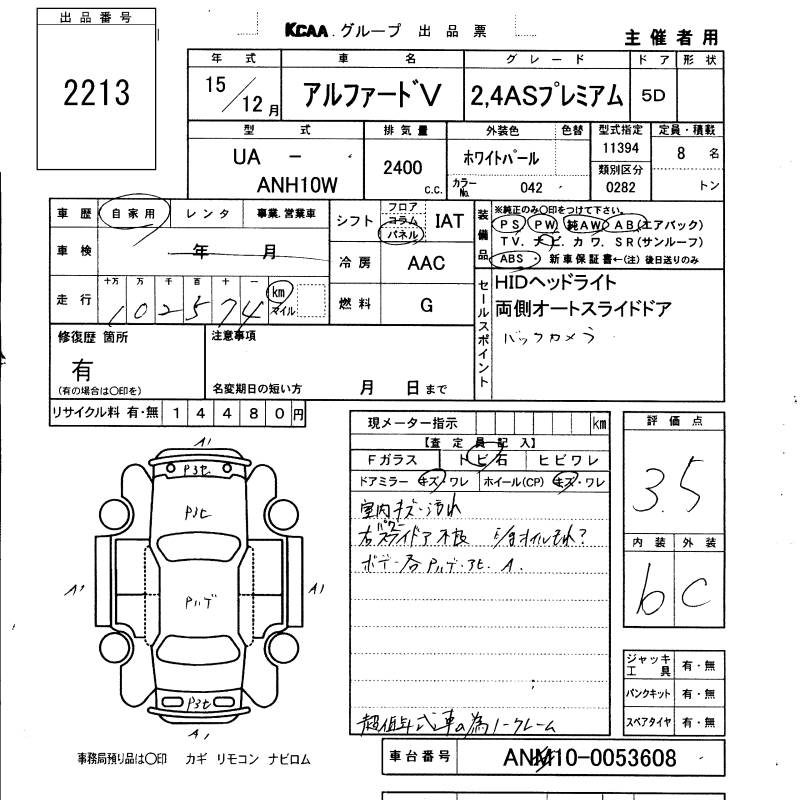 出品番号
2213
KCAA グループ 出品票
主催者用
年式 車名 グレード ドア 形状
15/12月 アルファードV 2,4ASプレミアム 5D
型式 排気量 外装色 色替 型式指定 定員・積載
UA - ANH10W
2400 c.c.
ホワイトパール
カラーNo. 042
11394
類別区分
0282
8 名
トン
車歴 自家用 レンタ 事業.営業車
シフト フロア コラム パネル IAT
装備品
※純正のみ○印をつけて下さい。
PS PW 純AW AB(エアバック)
TV. ナビ. カワ. SR(サンルーフ)
ABS 新車保証書←(注)後日送りのみ
車検 年 月
冷房 AAC
走行 十万 万 千 百 十 一
102574 km マイル
燃料 G
セールスポイント
HIDヘッドライト
両側オートスライドドア
バックカメラ
修復歴 箇所
有
(有の場合は○印を)
注意事項
名変期日の短い方 月 日まで
リサイクル料 有・無 14480円
現メーター指示 km
【査定員記入】
Fガラス トビ石 ヒビワレ
ドアミラー キズ・ワレ ホイール(CP) キズ・ワレ
室内キズ・汚れ
右パワースライドドア不良
ボデー各
A.
超低年式車の為ノークレーム
評価点
3.5
内装 外装
b C
ジャッキ工具 有・無
パンクキット 有・無
スペアタイヤ 有・無
A1
A1
A1
A1
事務局預り品は○印 カギ リモコン ナビロム
車台番号 ANH10-0053608